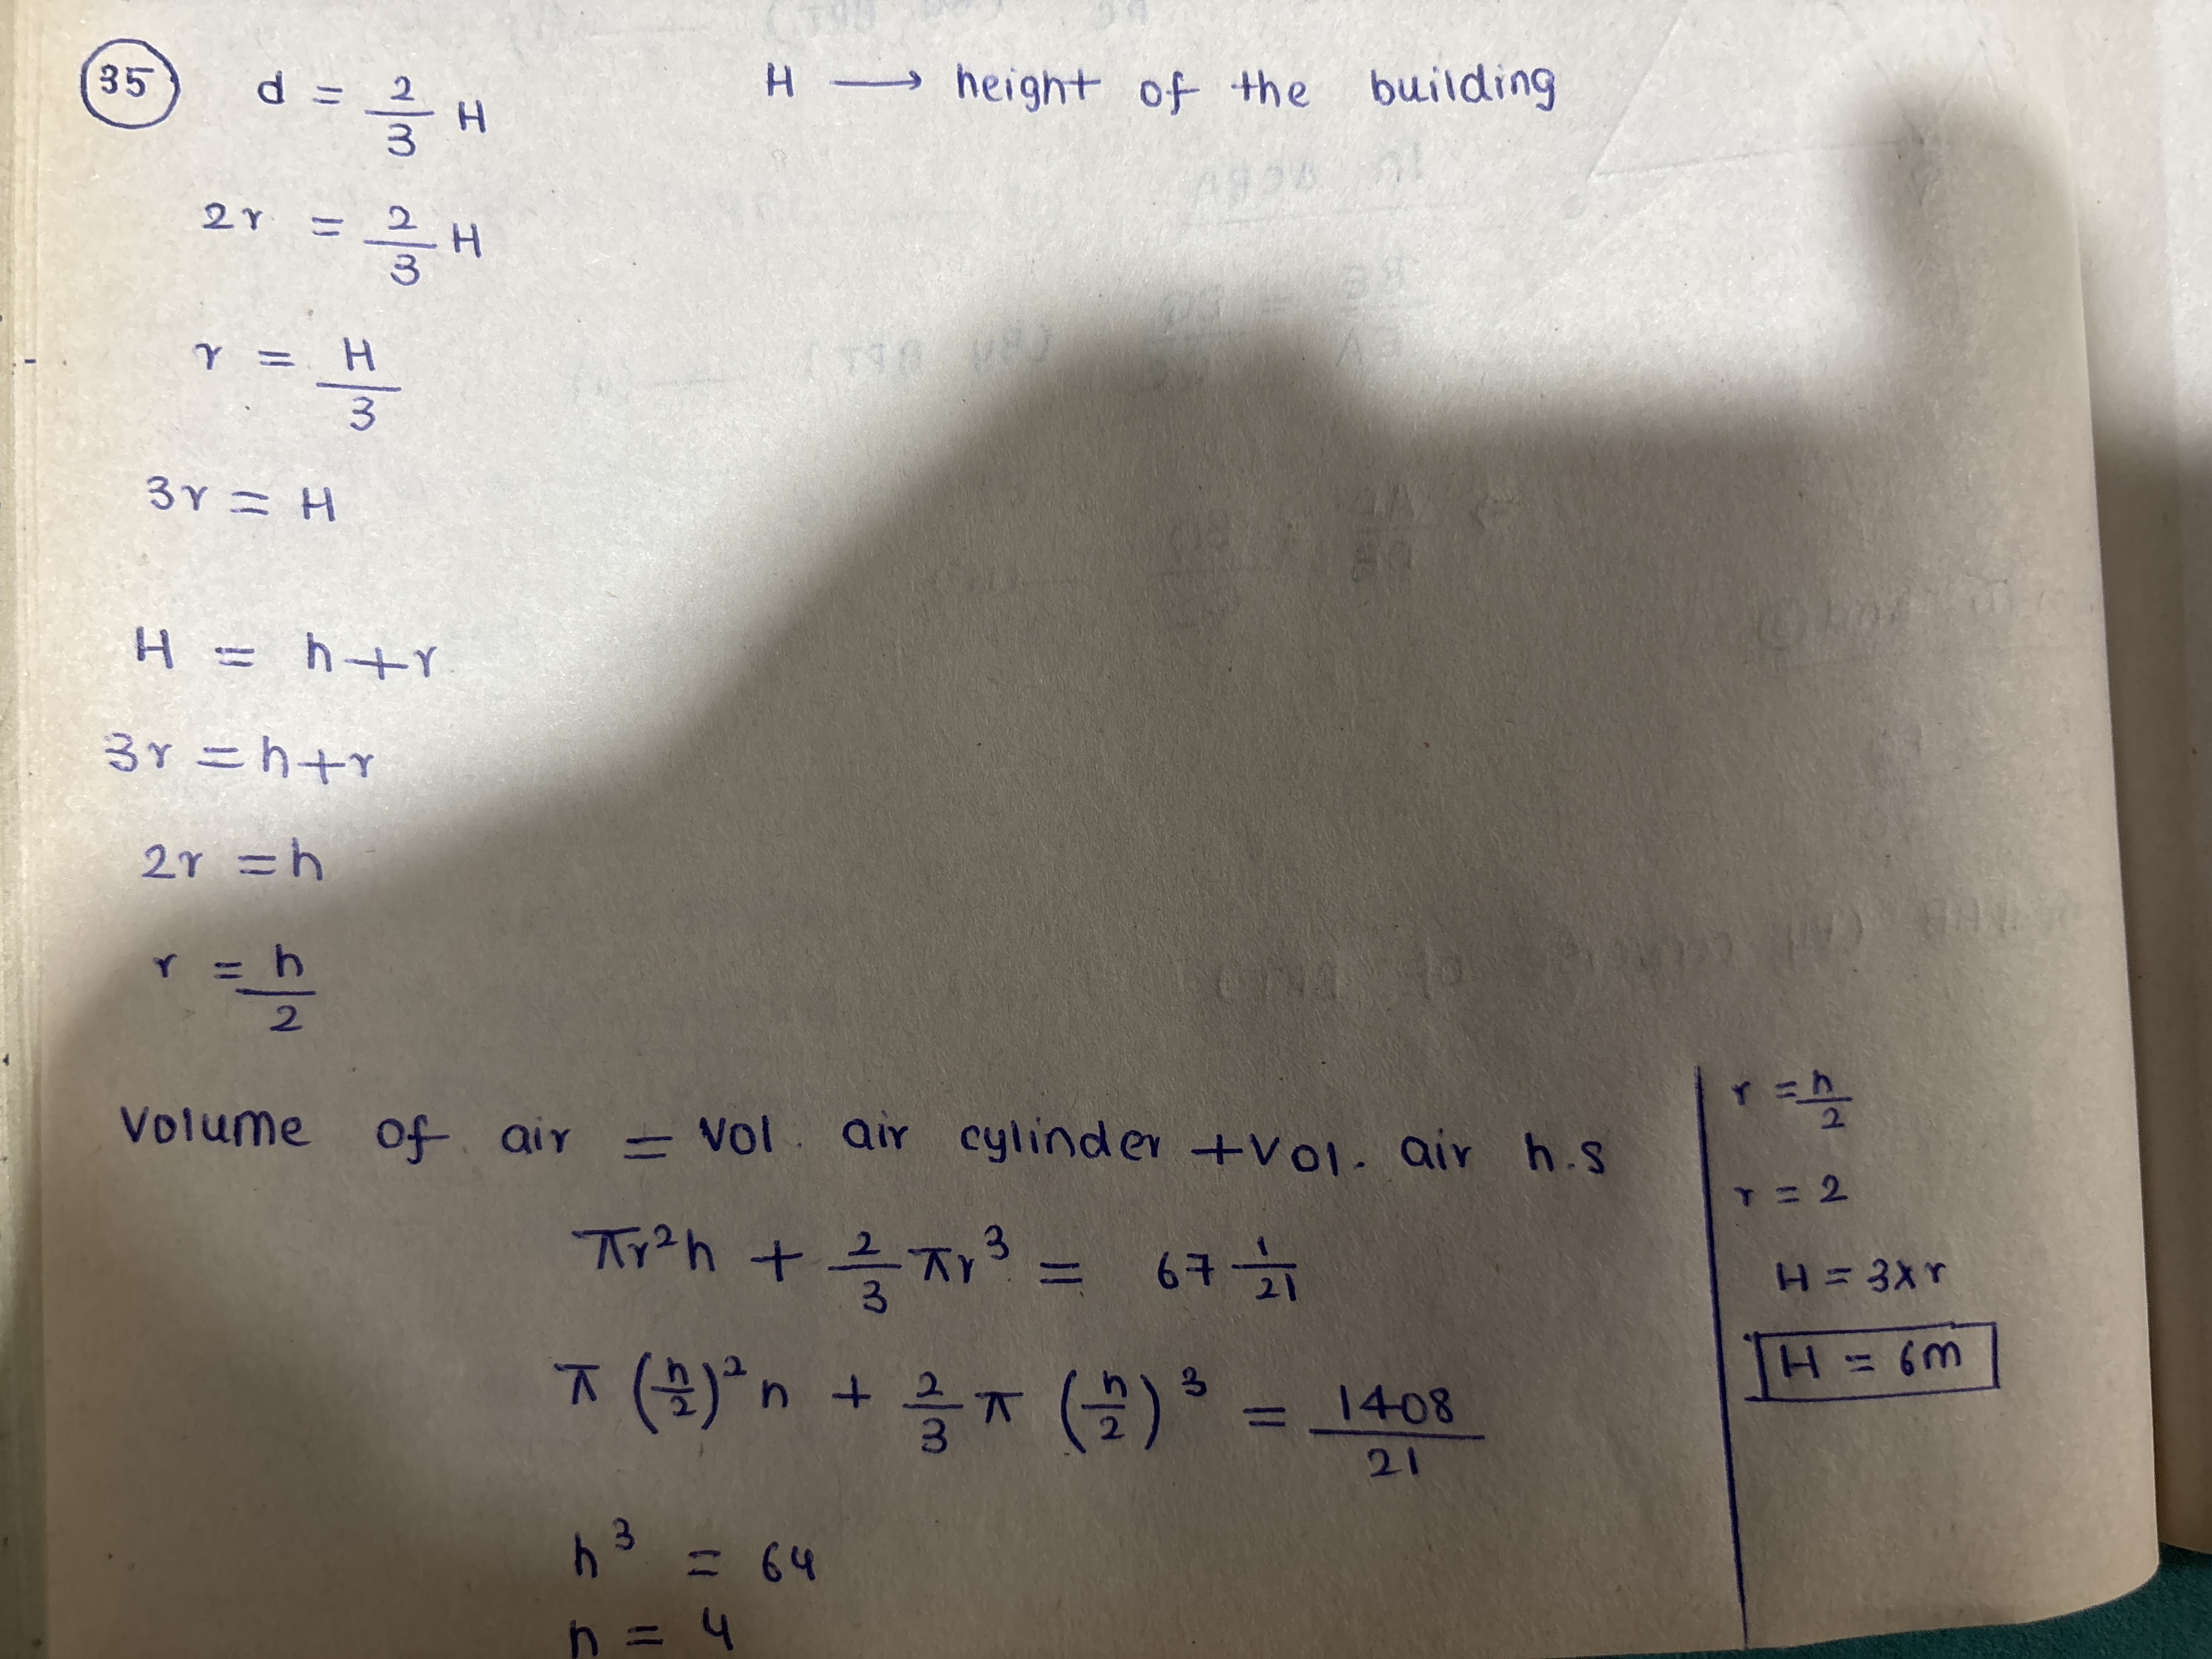 35 d = 2/3 H H → height of the building
2r = 2/3 H
r = H/3
3r = H
H = h+r
3r = h+r
2r = h
r = h/2
Volume of air = Vol. air cylinder + Vol. air h.s
πr²h + 2/3 πr³ = 67 1/21
π (h/2)² h + 2/3 π (h/2)³ = 1408/21
h³ = 64
h = 4
r = h/2
r = 2
H = 3×r
H = 6m